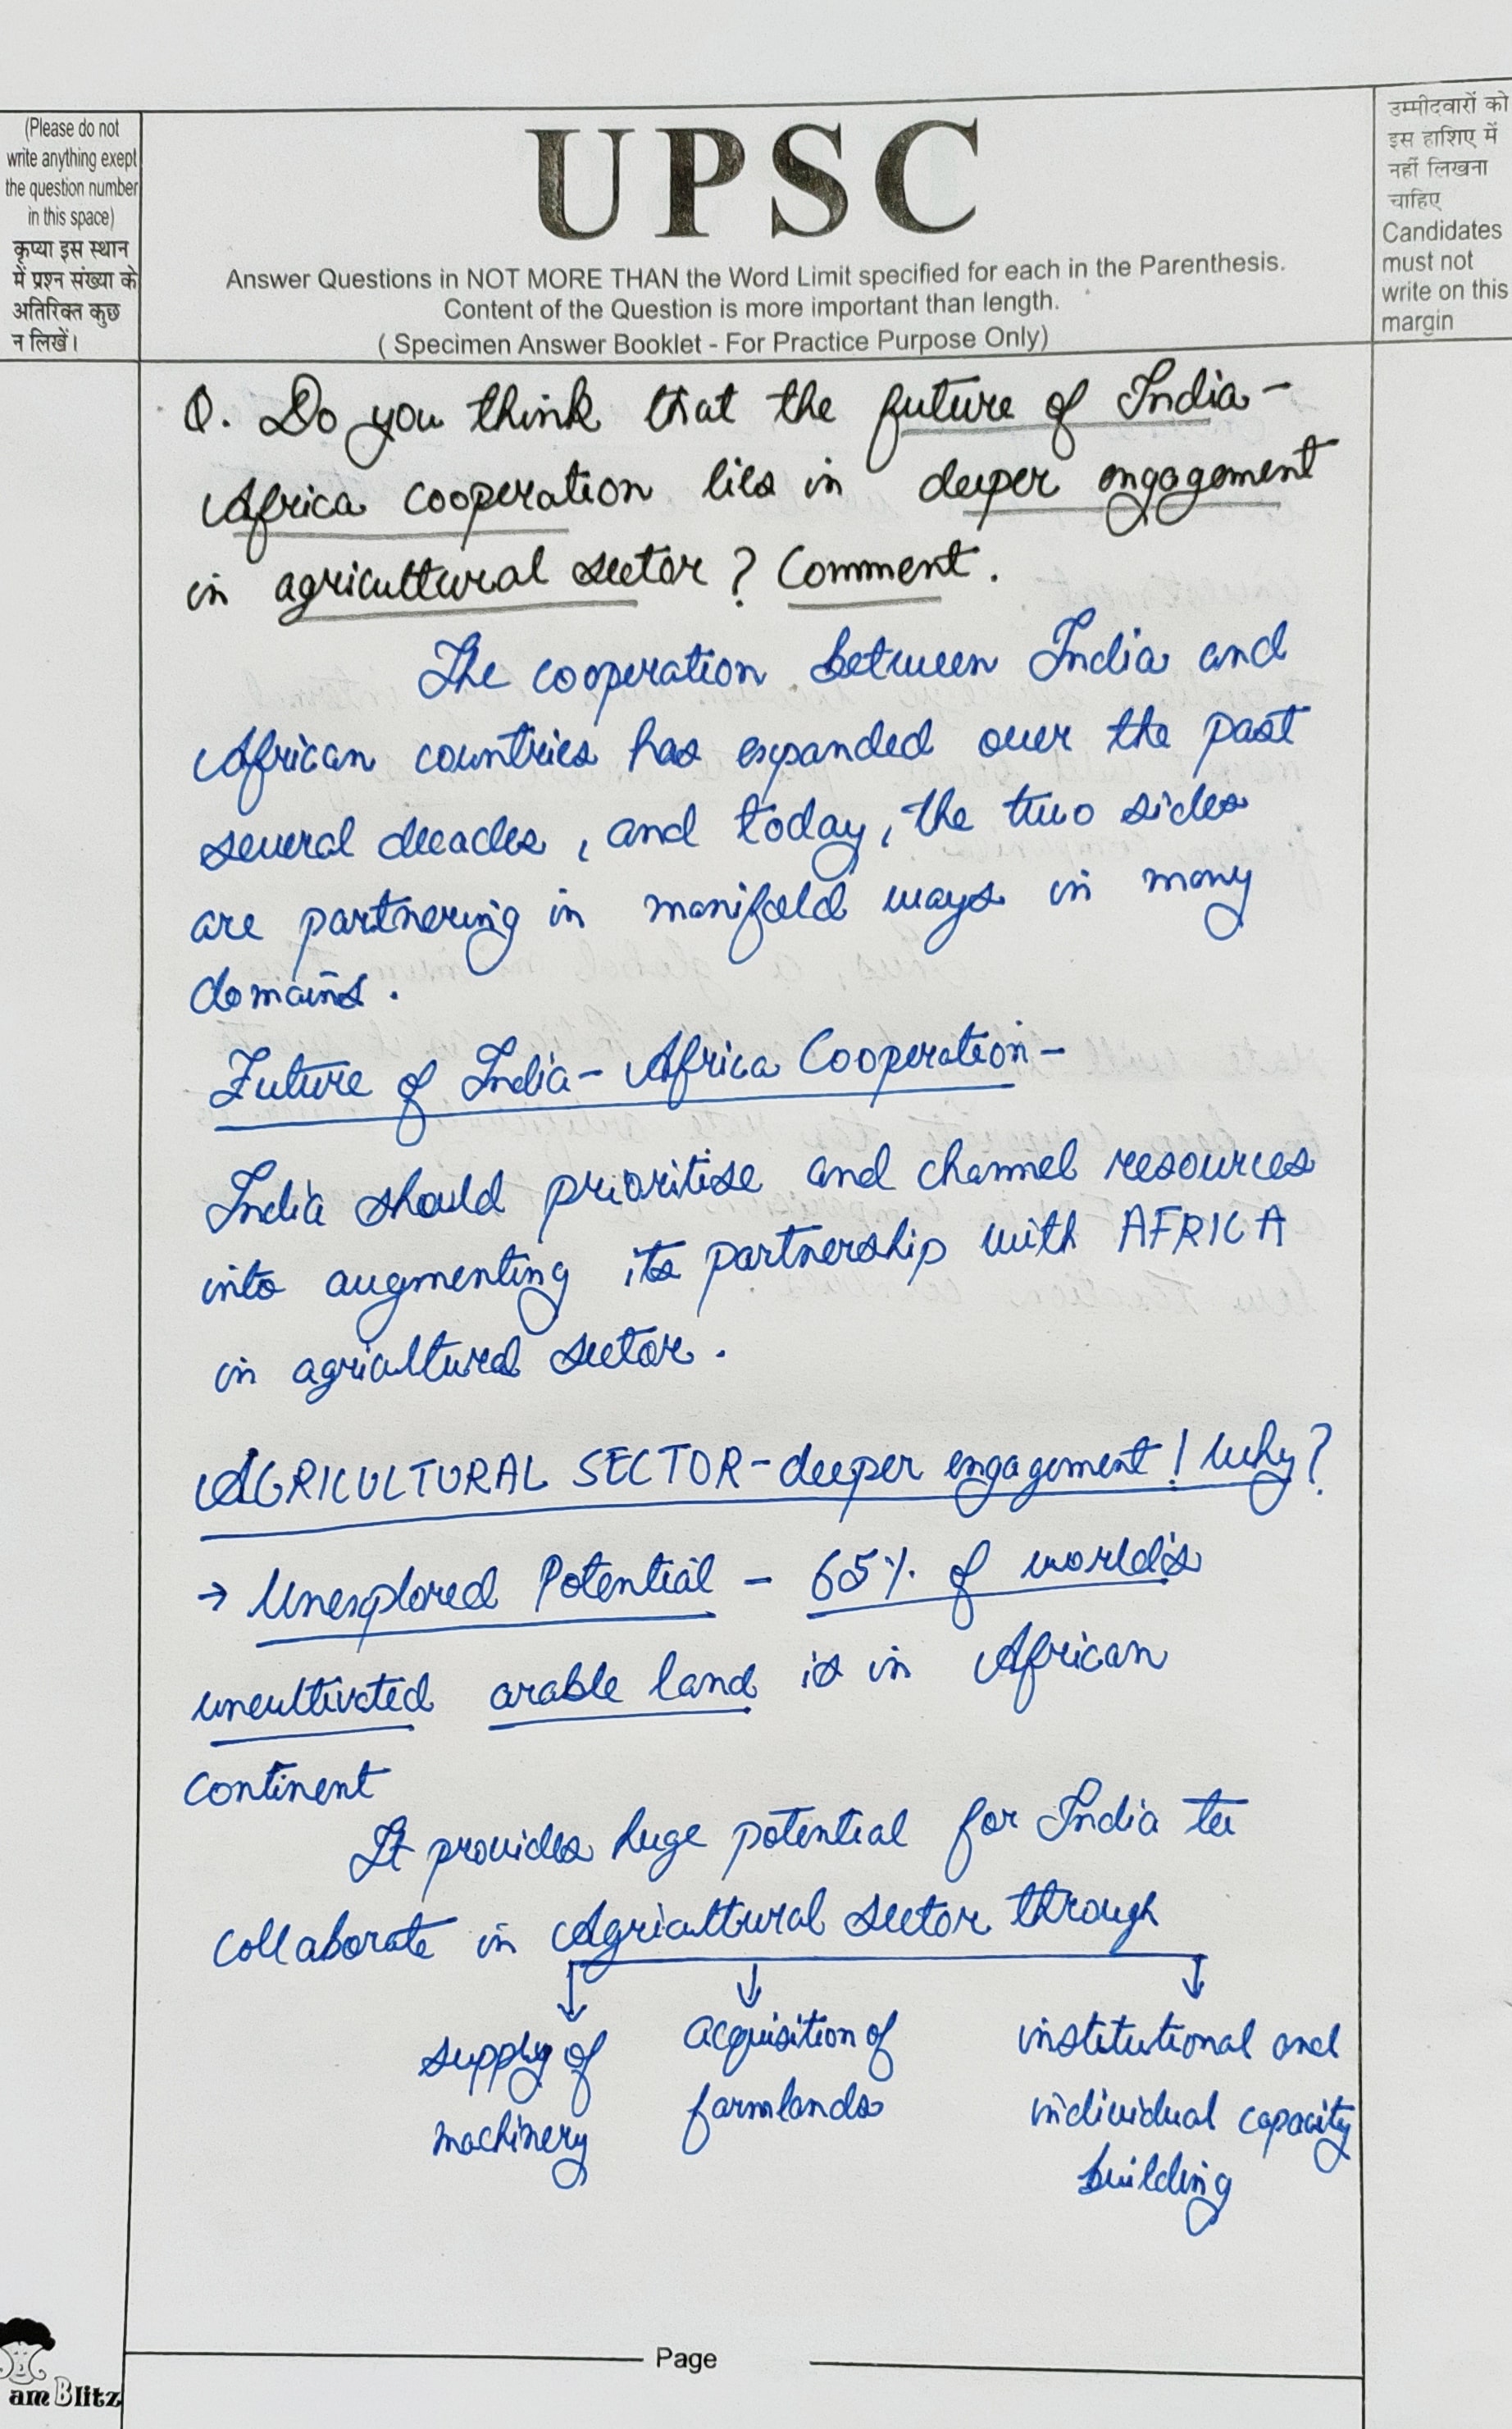 (Please do not
write anything exept
the question number
in this space)
कृप्या इस स्थान
में प्रश्न संख्या के
अतिरिक्त कुछ
न लिखें।
UPSC
Answer Questions in NOT MORE THAN the Word Limit specified for each in the Parenthesis.
Content of the Question is more important than length.
( Specimen Answer Booklet - For Practice Purpose Only)
उम्मीदवारों को
इस हाशिए में
नहीं लिखना
चाहिए
Candidates
must not
write on this
margin
Q. Do you think that the future of India-
Africa cooperation lies in deeper engagement
in agricultural sector? Comment.
The cooperation between India and
African countries has expanded over the past
several decades, and today, the two sides
are partnering in manifold ways in many
domains.
Future of India-Africa Cooperation-
India should prioritise and channel resources
into augmenting its partnership with AFRICA
in agricultural sector.
AGRICULTURAL SECTOR-deeper engagement! Why?
→ Unexplored Potential - 65% of world's
uncultivated arable land is in African
continent
It provides huge potential for India to
collaborate in Agricultural sector through
supply of
machinery
acquisition of
farmlands
institutional and
individual capacity
building
Page
am Blitz